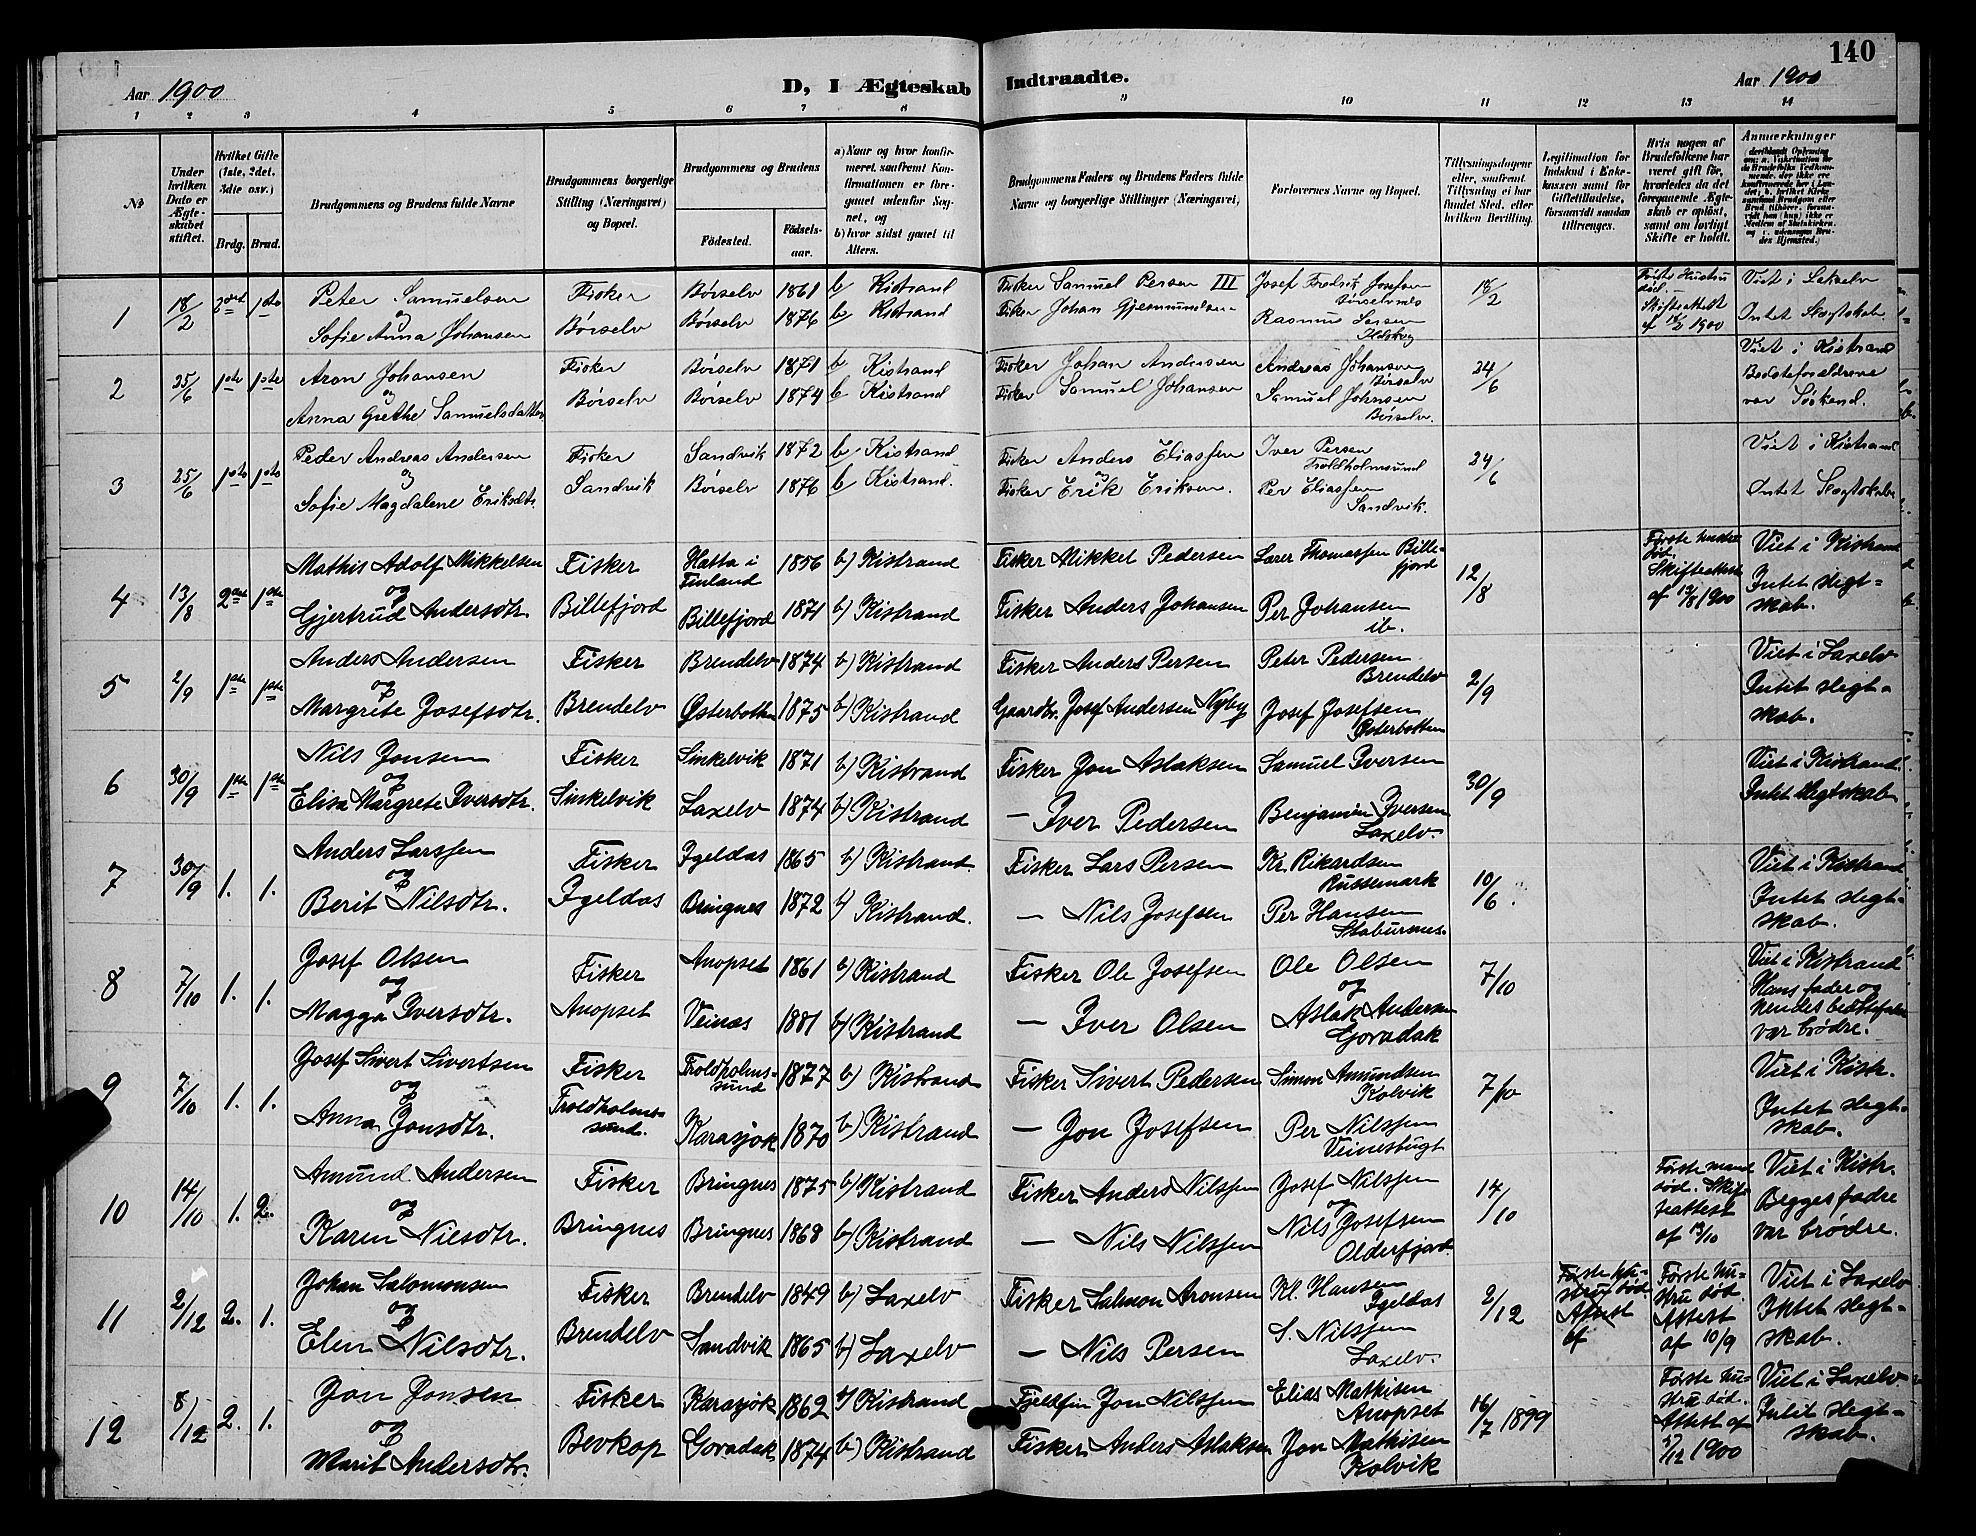 140
Aar 1900
D, I Ægteskab Indtraadte.
Aar 1900
1 2 3 4 5 6 7 8 9 10 11 12 13 14
№
Under hvilken Dato er Ægteskabet stiftet.
Hvilket Gifte (1ste, 2det, 3die osv.)
Brdg. Brud.
Brudgommens og Brudens fulde Navne
Brudgommens borgerlige Stilling (Næringsvei) og Bopæl.
Brudgommens og Brudens
Fødested. Fødselsaar.
a) Naar og hvor konfirmeret, saafremt Konfirmationen er foregaaet udenfor Sognet, og
b) hvor sidst gaaet til Alters.
Brudgommens Faders og Brudens Faders fulde Navne og borgerlige Stillinger (Næringsvei)
Forlovernes Navne og Bopæl.
Tillysningsdagene eller, saafremt Tillysning ei har fundet Sted, efter hvilken Bevilling.
Legitimation for Indskud i Enkekassen samt for Giftetilladelse, forsaavidt saadan tiltrænges.
Hvis nogen af Brudefolkene har været gift før, hvorledes da det foregaaende Ægteskab er opløst, samt om lovligt Skifte er holdt.
Anmærkninger
1 18/2 2det 1ste Peter Samuelsen Fisker Børselv 1861 b Kistrand Fisker Samuel Persen III Josef Fredrik Josefsen Børselvnes 18/2 Første Hustru død. – Skifteattest af 18/2 1900 Viet i Lakselv
og
Sofie Anna Johansen Børselv Børselv 1876 b Kistrand Fisker Johan Gjermundsen Rasmus Larsen Intet Slægtskab.
2 25/6 1ste 1ste Aron Johansen Fisker Børselv 1871 b Kistrand Fisker Johan Andersen Andreas Johansen Børselv 24/6 Viet i Kistrand
og
Anna Grethe Samuelsdatter Børselv Børselv 1874 b Kistrand Fisker Samuel Johansen Samuel Johnsen Børselv. Bedsteforældrene var Søskend.
3 25/6 1ste 1ste Peder Andreas Andersen Fisker Sandvik 1872 b Kistrand Fisker Anders Eliassen Iver Persen Troldholmsund 24/6 Viet i Kistrand
og
Sofie Magdalene Eriksdtr. Sandvik Børselv 1876 b Kistrand. Fisker Erik Eriksen. Per Eliassen Sandvik. Intet Slægtskab
4 13/8 2det 1ste Mathis Adolf Mikkelsen Fisker Hatta i Finland 1856 b) Kistrand Fisker Mikkel Pedersen Lærer Thomassen Billefjord 12/8 Første hustru død. Skifteattest af 12/8 1900 Viet i Kistrand
og
Gjertrud Andersdtr. Billefjord Billefjord 1871 b) Kistrand Fisker Anders Johansen Per Johansen ib. Intet slegtskab.
5 2/9 1ste 1ste Anders Andersen Fisker Brendelv 1874 b) Kistrand Fisker Anders Persen Peter Pedersen Brendelv 2/9 Viet i Laxelv
og
Margrete Josefsdtr. Brendelv Østerbotten 1875 b) Kistrand Gaardbr. Josef Andersen Nyby Josef Josefsen Østerbotten Intet slegtskab.
6 30/9 1ste 1ste Nils Jonsen Fisker Sinkelvik 1871 b) Kistrand Fisker Jon Aslaksen Samuel Iversen 30/9 Viet i Kistrand.
og
Elisa Margrete Iversdtr. Sinkelvik Laxelv 1874 b) Kistrand – Iver Pedersen Benjamin Iversen Laxelv. Intet slegtskab
7 30/9 1. 1. Anders Larssen Fisker Igeldas 1865 b) Kistrand. Fisker Lars Persen Kr. Rikardsen Russemark 10/6. Viet i Kistrand
og
Berit Nilsdtr. Igeldas Bringnes 1872 b) Kistrand. – Nils Josefsen Per Hansen Staburnes. Intet slegtskab.
8 7/10 1. 1. Josef Olsen Fisker Anopset 1861 b) Kistrand Fisker Ole Josefsen Ole Olsen 7/10 Viet i Kistrand
og
Magga Iversdtr. Anopset Veinæs 1881 b) Kistrand – Iver Olsen og Aslak Andersen Goradak Hans fader og hendes bedstefader var brødre.
9 7/10 1. 1. Josef Sivert Sivertsen Fisker Troldholmssund 1877 b) Kistrand Fisker Sivert Pedersen Simon Amundsen Kolvik 7/10 Viet i Kistr.
og
Anna Jonsdtr. Troldholmssund. Karasjok 1870 b) Kistrand – Jon Josefsen Per Nilssen Veinesbugt Intet slegtskab.
10 14/10 1. 2. Amund Andersen Fisker Bringnes 1875 b) Kistrand Fisker Anders Nilssen Josef Nilssen 14/10 Første mand død. Skifteattest af 13/10 Viet i Kistr.
og
Karen Nilsdtr. Bringnes Bringnes 1868 b) Kistrand – Nils Nilssen og Nils Josefsen Olderfjord. Begges fædre var brødre.
11 2/12 2. 1. Johan Salomonsen Fisker Brendelv 1849 b) Laxelv Fisker Salmon Aronsen Kl. Hansen Igeldas 2/12 Første hustru død Attest af Første hustru død. Attest af 10/9 Viet i Laxelv
og
Elen Nilsdtr. Brendelv Sandvik 1865 b) Laxelv – Nils Persen S. Nilssen Laxelv. Intet slegtskab.
12 8/12 2. 1. Jon Jonsen Fisker Karasjok 1862 b) Kistrand Fjeldfin Jon Nilssen Elias Mathisen Anopset 16/7 1899 Første hustru død. Attest af 5/12 1900 Viet i Laxelv
og
Marit Andersdtr. Bevkop Goradak 1874 b) Kistrand Fisker Anders Aslaksen Jon Mathisen Kolvik Intet slegtskab.